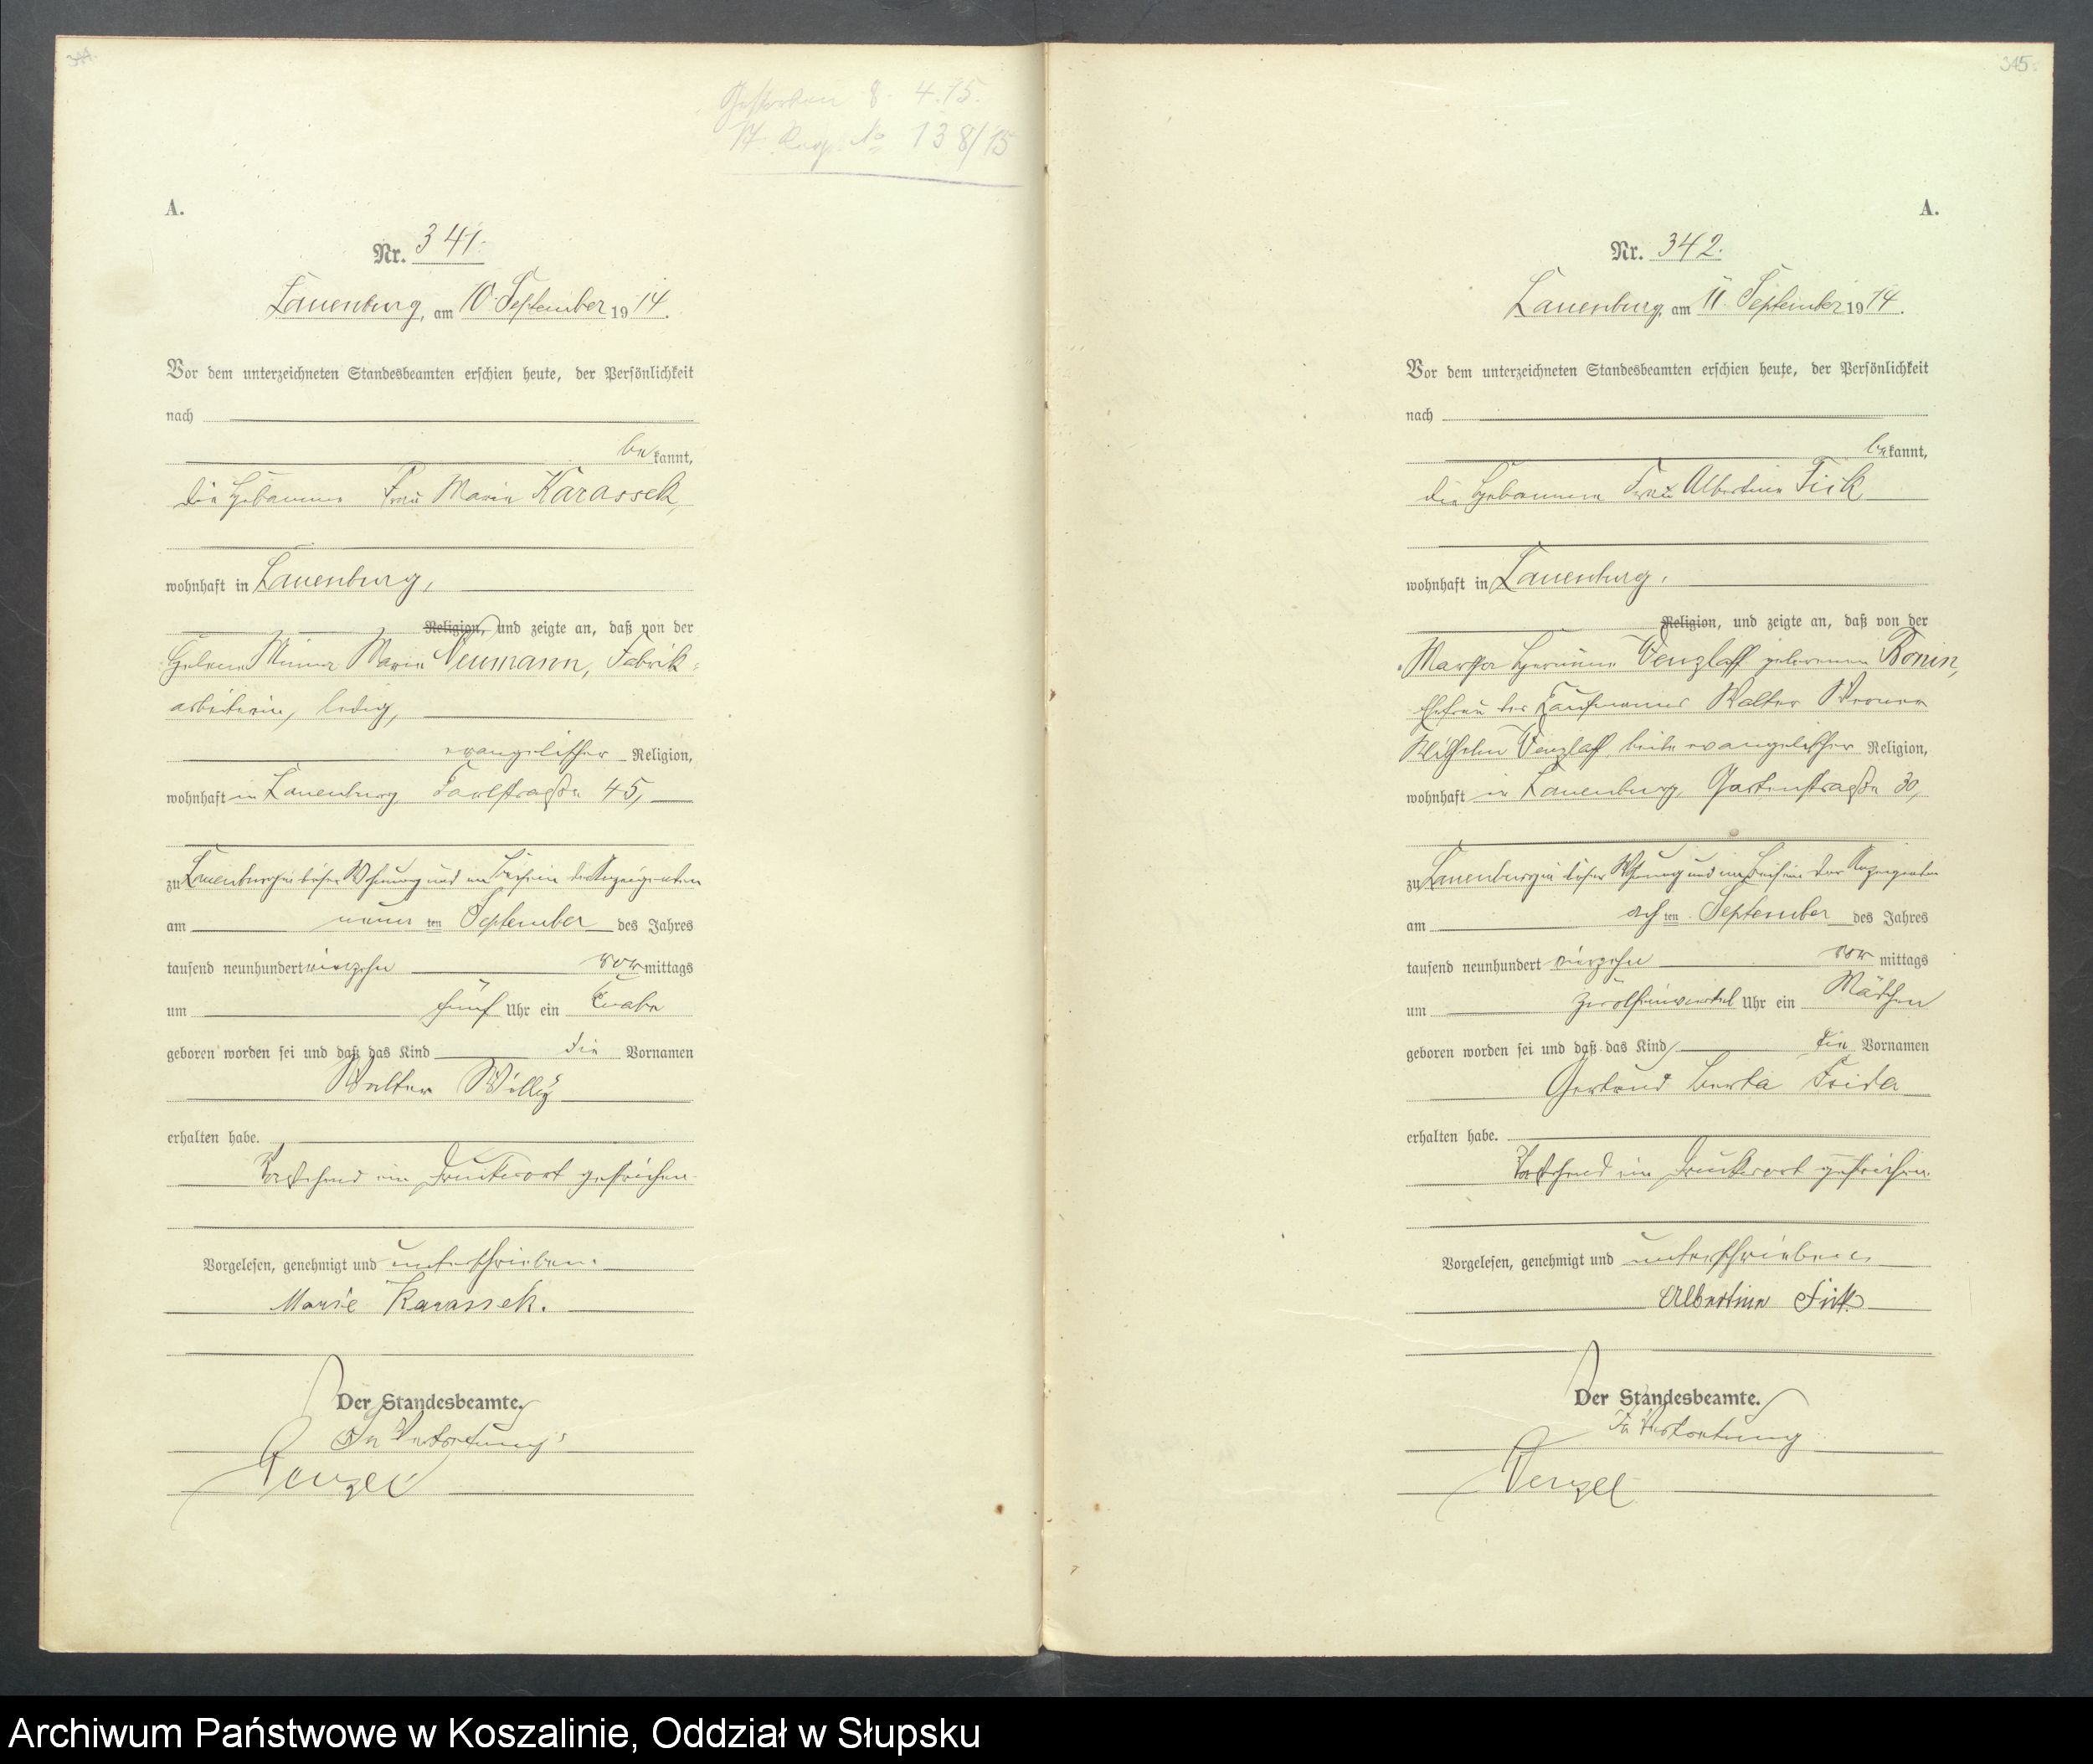 344.
Gestorben 8. 4. 15.
St. Reg. No 138/15
A.
Nr. 341.
Lauenburg, am 10. September 1914.
Vor dem unterzeichneten Standesbeamten erschien heute, der Persönlichkeit
nach
bekannt,
die Hebamme Frau Marie Karassek,
wohnhaft in Lauenburg,
Religion, und zeigte an, daß von der
Helene Minna Marie Neumann, Fabrik-
arbeiterin, ledig,
evangelischer Religion,
wohnhaft in Lauenburg, 45,
zu Lauenburg in dieser Wohnung und im Beisein der Anzeigenden
am neunten September des Jahres
tausend neunhundert vierzehn vormittags
um fünf Uhr ein Knabe
geboren worden sei und daß das Kind die Vornamen
Walter Willy
erhalten habe.
Vorstehend ein Druckwort gestrichen.
Vorgelesen, genehmigt und unterschrieben.
Marie Karassek.
Der Standesbeamte.
In Vertretung:
Wenzel
345.
A.
Nr. 342.
Lauenburg, am 11. September 1914.
Vor dem unterzeichneten Standesbeamten erschien heute, der Persönlichkeit
nach
bekannt,
die Hebamme Frau Albertine Fick
wohnhaft in Lauenburg,
Religion, und zeigte an, daß von der
Hermine Venzlaff geborenen Ronin,
Ehefrau des Kaufmanns Walter Werner
Wilhelm Venzlaff, beide evangelischer Religion,
wohnhaft in Lauenburg, Gartenstraße 30,
zu Lauenburg in dieser Wohnung und im Beisein der Anzeigenden
am achten September des Jahres
tausend neunhundert vierzehn vormittags
um Uhr ein Mädchen
geboren worden sei und daß das Kind die Vornamen
Gertrud Berta Frida
erhalten habe.
Vorstehend ein Druckwort gestrichen.
Vorgelesen, genehmigt und unterschrieben
Albertine Fick
Der Standesbeamte.
In Vertretung
Wenzel
Archiwum Państwowe w Koszalinie, Oddział w Słupsku